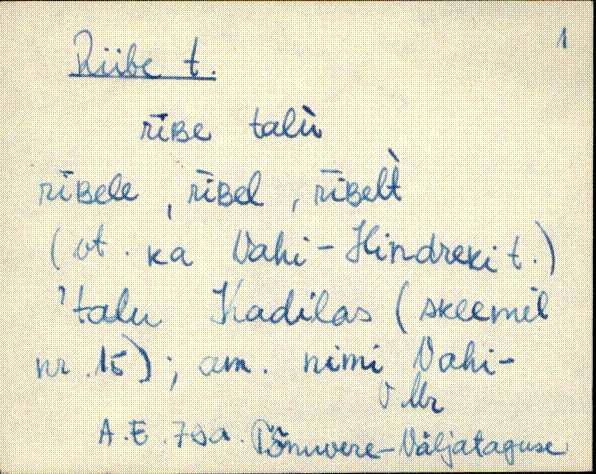 1
Riibe t.
rīʙe talù
rīʙele, rīʙel, rīʙelt̀
(vt. ka Vahi-Hindreki t.)
'talu Kadilas (skeemil
nr. 15); am. nimi Vahi-
VMr
A.E. 79a. Põnuvere-Väljataguse